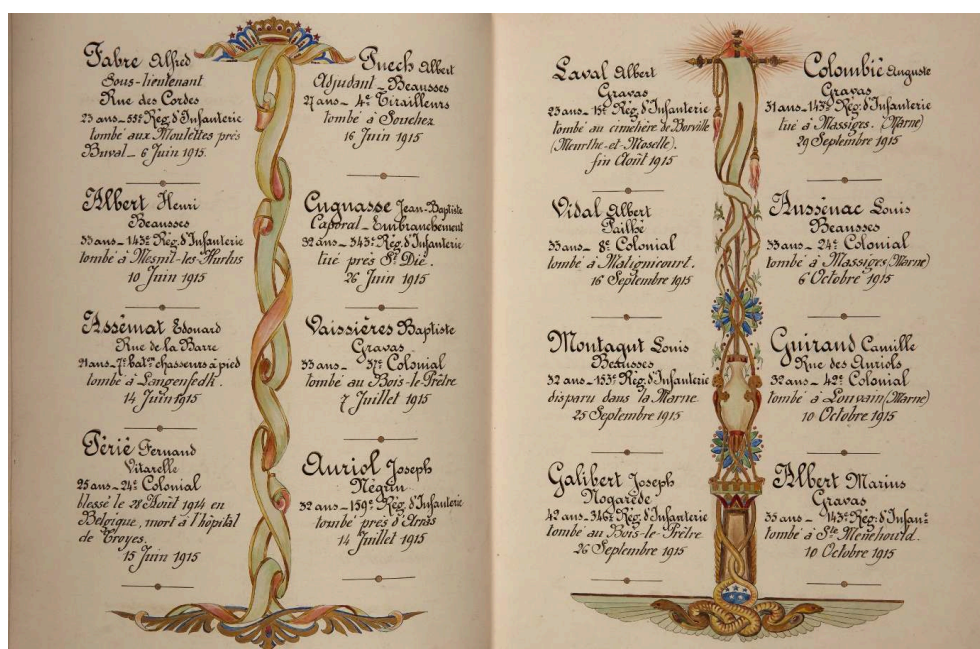 Fabre Alfred
Sous-lieutenant
Rue des Cordes
23 ans - 55e Rég. d'Infanterie
tombé aux Moulettes près
Buval - 6 Juin 1915.
Albert Henri
Beausses
33 ans - 143e Rég. d'Infanterie
tombé à Mesnil-les-Hurlus
10 Juin 1915
Assémat Edouard
Rue de la Barre
21 ans - 7e bat.on chasseurs à pied
tombé à
14 Juin 1915
Périé Fernand
Vitarelle
25 ans - 24e Colonial
blessé le 28 Août 1914 en
Belgique, mort à l'hôpital
de Troyes.
15 Juin 1915
Puech Albert
Adjudant - Beausses
27 ans - 4e Tirailleurs
tombé à Souchez
16 Juin 1915
Cugnasse Jean-Baptiste
Caporal - Embranchement
32 ans - 343e Rég. d'Infanterie
tué près St Dié.
26 Juin 1915
Vaissières Baptiste
Gravas
33 ans - 37e Colonial
tombé au Bois-le-Prêtre
7 Juillet 1915
Auriol Joseph
Négrin
32 ans - 159e Rég. d'Infanterie
tombé près d'Arras
14 Juillet 1915
Laval Albert
Gravas
23 ans - 15e Rég. d'Infanterie
tombé au cimetière de Borville
(Meurthe-et-Moselle).
fin Août 1915
Vidal Albert
Pailhé
33 ans - 8e Colonial
tombé à Matignicourt.
16 Septembre 1915
Montagut Louis
Beausses
32 ans - 153e Rég. d'Infanterie
disparu dans la Marne
25 Septembre 1915
Galibert Joseph
Nogarède
42 ans - 346e Rég. d'Infanterie
tombé au Bois-le-Prêtre
26 Septembre 1915
Colombié Auguste
Gravas
31 ans - 143e Rég. d'Infanterie
tué à Massiges. (Marne)
29 Septembre 1915
Aussénac Louis
Beausses
33 ans - 24e Colonial
tombé à Massiges (Marne)
6 Octobre 1915
Guiraud Camille
Rue des Auriols
32 ans - 42e Colonial
tombé à Louvain (Marne)
10 Octobre 1915
Albert Marius
Gravas
35 ans - 143e Rég. d'Infan.e
tombé à Ste Menehould.
10 Octobre 1915